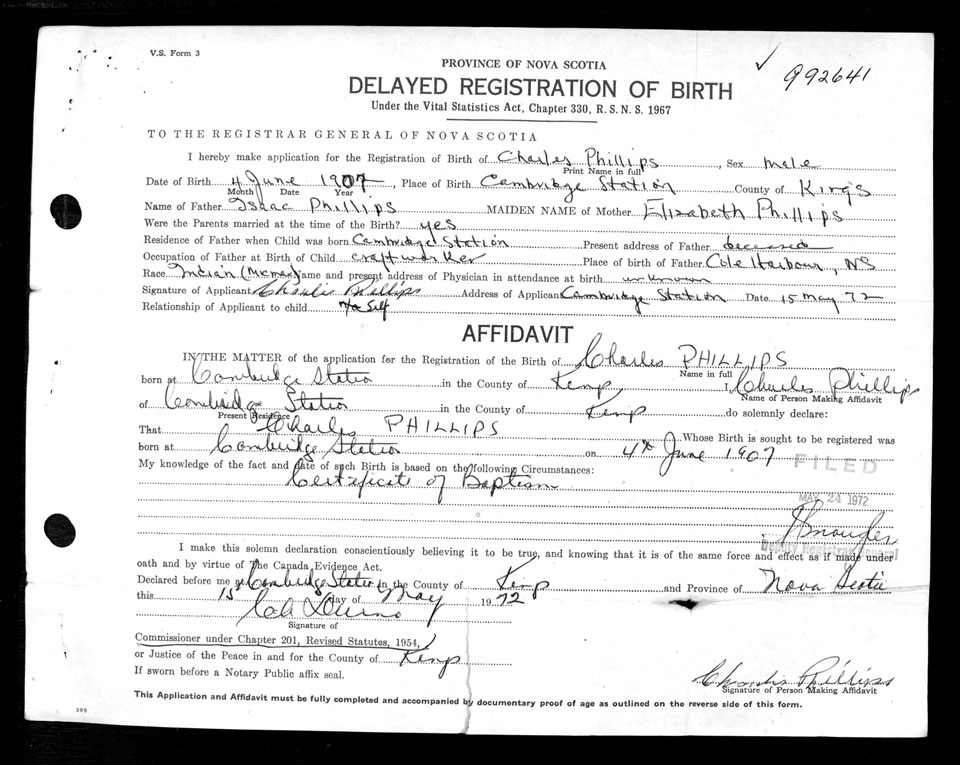 V.S. Form 3
PROVINCE OF NOVA SCOTIA
✓ 992641
DELAYED REGISTRATION OF BIRTH
Under the Vital Statistics Act, Chapter 330, R.S.N.S. 1967
TO THE REGISTRAR GENERAL OF NOVA SCOTIA
I hereby make application for the Registration of Birth of Charles Phillips, Sex Male
Print Name in full
Date of Birth 4 June 1907, Place of Birth Cambridge Station County of Kings
Month Date Year
Name of Father Isaac Phillips MAIDEN NAME of Mother Elizabeth Phillips
Were the Parents married at the time of the Birth? yes
Residence of Father when Child was born Cambridge Station Present address of Father deceased
Occupation of Father at Birth of Child craft worker Place of birth of Father Cole Harbour, NS
Race Indian (Micmac) Name and present address of Physician in attendance at birth unknown
Signature of Applicant Charlis Phillips Address of Applicant Cambridge Station Date 15 May 72
Relationship of Applicant to child Self
AFFIDAVIT
IN THE MATTER of the application for the Registration of the Birth of Charles PHILLIPS
Name in full
born at Cambridge Station in the County of Kings I, Charles Phillips
Name of Person Making Affidavit
of Cambridge Station in the County of Kings do solemnly declare:
Present Residence
That Charles PHILLIPS Whose Birth is sought to be registered was
born at Cambridge Station on 4th June 1907
My knowledge of the fact and date of such Birth is based on the following Circumstances:
FILED
Certificate of Baptism
MAY 24 1972
Deputy Registrar General
I make this solemn declaration conscientiously believing it to be true, and knowing that it is of the same force and effect as if made under
oath and by virtue of The Canada Evidence Act.
Declared before me at Cambridge Station in the County of Kings and Province of Nova Scotia
this 15 day of May 1972
Signature of
Commissioner under Chapter 201, Revised Statutes, 1954,
or Justice of the Peace in and for the County of Kings
If sworn before a Notary Public affix seal.
Charlis Phillips
Signature of Person Making Affidavit
This Application and Affidavit must be fully completed and accompanied by documentary proof of age as outlined on the reverse side of this form.
385